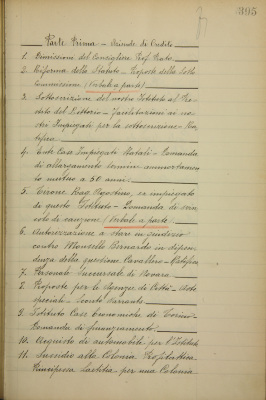 395
Parte Prima - Aziende di Credito
1. Dimissione del Consigliere Prof. Prato
2. Riforma dello Statuto - Proposte della Sotto
Commissione (Verbali a parte)
3. Sottoscrizione del nostro Istituto al Pre-
stito del Littorio - Facilitazioni ai no-
stri Impiegati per la sottoscrizione -
4. Ente Case Impiegati Statali - Domanda
di allargamento termine ammortamen-
to mutuo a 50 anni.
5. Cirone Rag. Agostino, ex impiegato
di questo Istituto - Domanda di svin-
colo di cauzione (Verbale a parte.
6. Autorizzazione a stare in giudizio
contro Monsello Bernardo in dipen-
denza della questione Cavallero - Ratifica
7. Personale Succursale di Novara
8. Proposte per le Agenzie di Città -
speciale - Sconto Varianti
9. Istituto Case Economiche di Torino -
Domanda di finanziamento.
10. Acquisto di automobile per l'Istituto
11. Sussidio alla Colonia Profilattica
Principessa Laetitia - per una Colonia